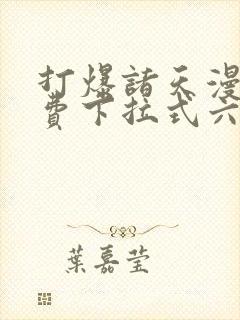 打爆諸天漫
費下拉式六
葉嘉莹